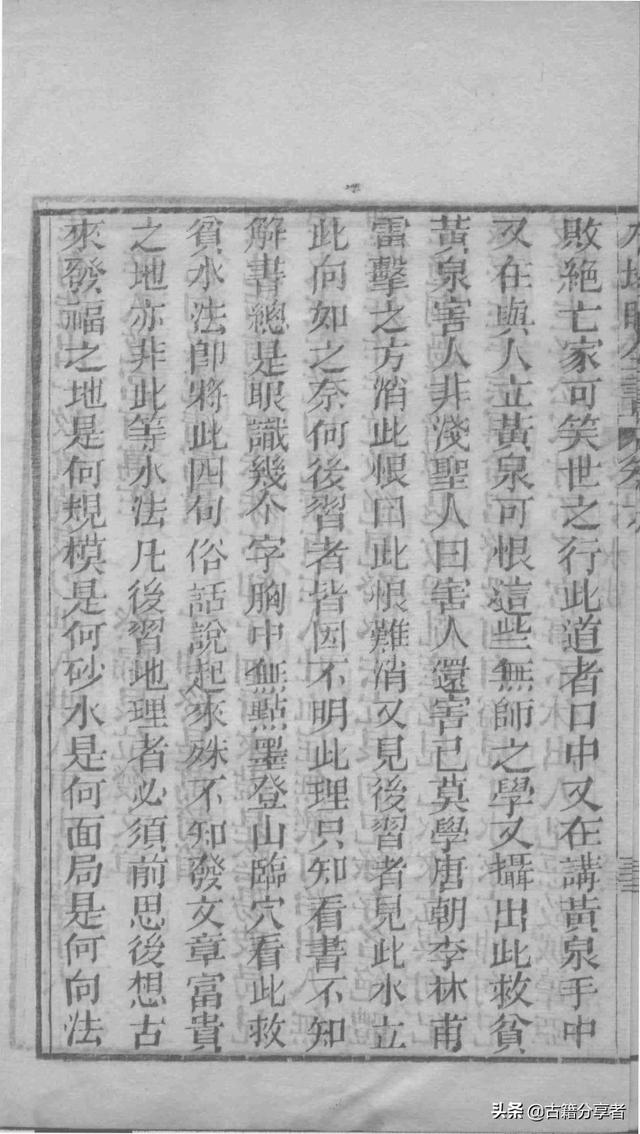 敗絶亡家可笑世之行此道者口中又在講黃泉手中
又在與人立黃泉可恨這些無師之學又攝出此救貧
黃泉害人非淺聖人曰害人還害已莫學唐朝李林甫
雷擊之方消此恨曰此恨難消又見後習者見此水立
此向如之奈何後習者皆因不明此理只知看書不知
解書總是眼識幾个字胸中無點墨登山臨穴看此救
貧水法卽將此四句俗話說起來殊不知發文章富貴
之地亦非此等水法凡後習地理者必須前思後想古
來發福之地是何規模是何砂水是何面局是何向法
头条 @古籍分享者